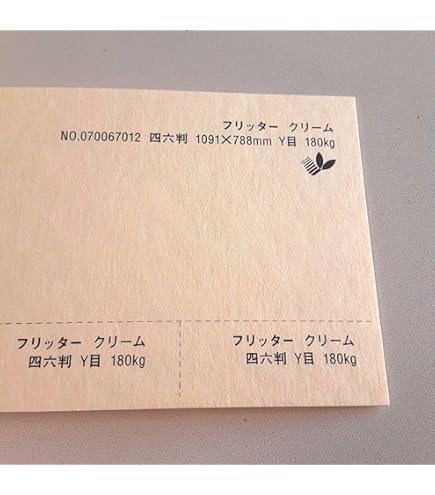 フリッター クリーム
NO.070067012 四六判 1091×788mm Y目 180kg
フリッター クリーム
四六判 Y目 180kg
フリッター クリーム
四六判 Y目 180kg